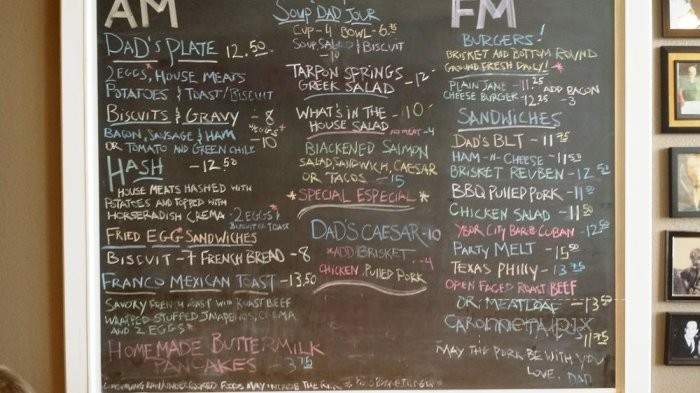 AM
DAD'S PLATE 12.50
2 EGGS, HOUSE MEATS
POTATOES & TOAST/BISCUIT
BISCUITS & GRAVY - 8
W/EGGS - 10
BACON, SAUSAGE & HAM
OR TOMATO AND GREEN CHILE
HASH - 12.50
HOUSE MEATS HASHED WITH
POTATOES AND TOPPED WITH
HORSERADISH CREMA - 2 EGGS*
BISCUIT OR TOAST
FRIED EGG* SANDWICHES
BISCUIT - 7 FRENCH BREAD - 8
FRANCO MEXICAN TOAST - 13.50
SAVORY FRENCH TOAST WITH ROAST BEEF
WRAPPED STUFFED JALAPEÑOS, CREMA
AND 2 EGGS*
HOMEMADE BUTTERMILK
PANCAKES - 3.75
SOUP DAD JOUR
CUP - 4 BOWL - 6.75
SOUP, SALAD & BISCUIT
- 10
TARPON SPRINGS - 12
GREEK SALAD
WHAT'S IN THE - 10
HOUSE SALAD
NO MEAT - 4
BLACKENED SALMON
SALAD, SANDWICH, CAESAR
OR TACOS - 15
*SPECIAL ESPECIAL*
DAD'S CAESAR - 10
*ADD BRISKET - 4
CHICKEN, PULLED PORK
FM
BURGERS!
BRISKET AND BOTTOM ROUND
GROUND FRESH DAILY!*
PLAIN JANE - 11.25 ADD BACON
CHEESE BURGER - 12.25 - 3
SANDWICHES
DAD'S BLT - 11.75
HAM-N-CHEESE - 11.50
BRISKET REUBEN - 12.50
BBQ PULLED PORK - 11.50
CHICKEN SALAD - 11.50
YBOR CITY BAR CUBAN - 12.50
PARTY MELT - 15.50
TEXAS PHILLY - 13.75
OPEN FACED ROAST BEEF
OR MEATLOAF - 13.50
- 11.75
MAY THE PORK BE WITH YOU
LOVE, DAD